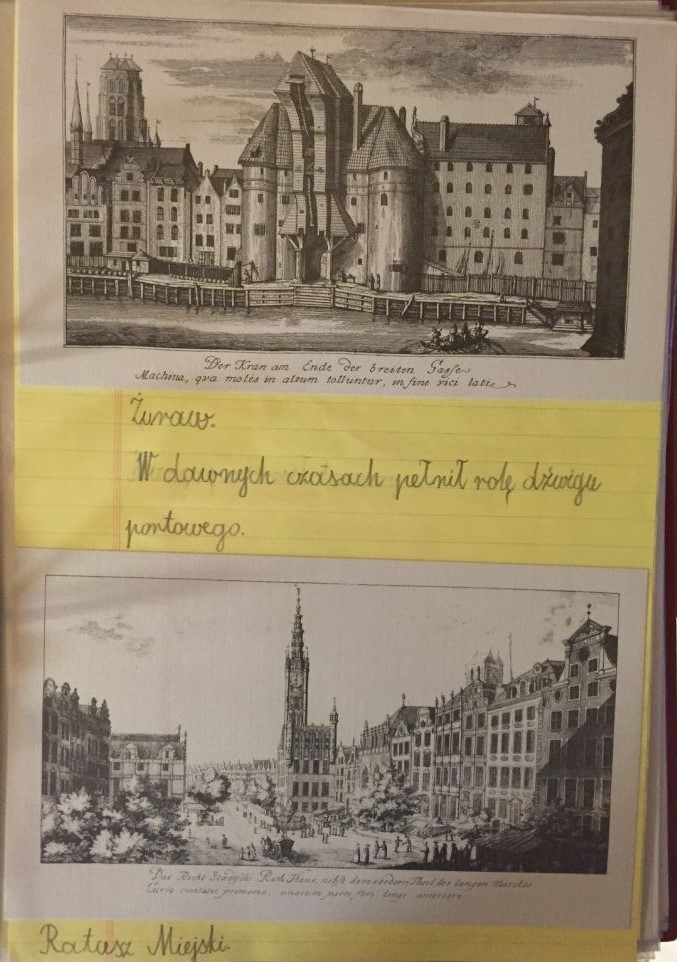 Der Kran am Ende der breiten Gasse
Machina, qva moles in altum tolluntur, in fine vici latie
Żuraw.
W dawnych czasach pełnił rolę dźwigu
portowego.
Das Recht Städtsche Rath Haus, nebst dem vordern Theil des langen Marckts
Curia civitatis primariæ, unacum parte fori longi anteriore
Ratusz Miejski.